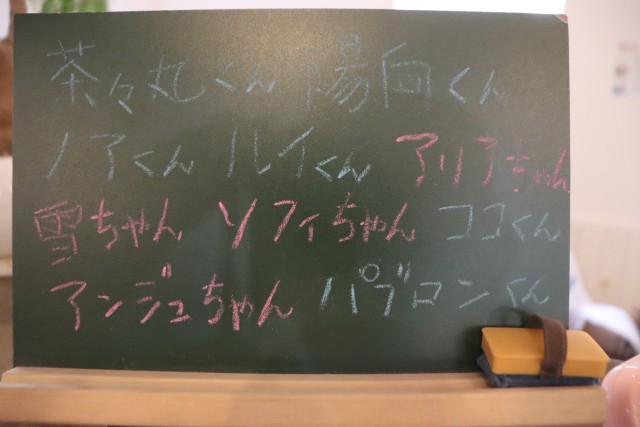 茶々丸くん 陽向くん
ノアくん ルイくん アリアちゃん
雪ちゃん ソフィちゃん ココくん
アンジュちゃん パブロンくん